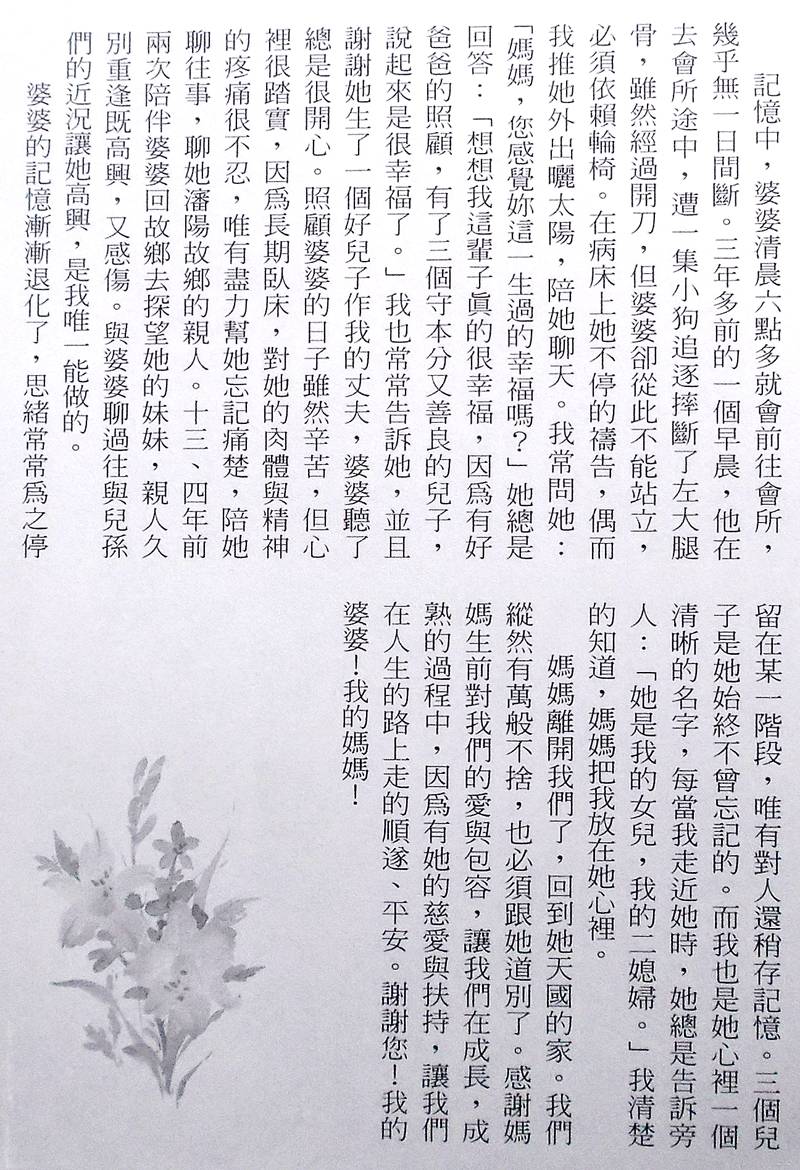 記憶中，婆婆清晨六點多就會前往會所，
幾乎無一日間斷。三年多前的一個早晨，他在
去會所途中，遭一集小狗追逐摔斷了左大腿
骨，雖然經過開刀，但婆婆卻從此不能站立，
必須依賴輪椅。在病床上她不停的禱告，偶而
我推她外出曬太陽，陪她聊天。我常問她：
「媽媽，您感覺妳這一生過的幸福嗎？」她總是
回答：「想想我這輩子眞的很幸福，因爲有好
爸爸的照顧，有了三個守本分又善良的兒子，
說起來是很幸福了。」我也常常告訴她，並且
謝謝她生了一個好兒子作我的丈夫，婆婆聽了
總是很開心。照顧婆婆的日子雖然辛苦，但心
裡很踏實，因爲長期臥床，對她的肉體與精神
的疼痛很不忍，唯有盡力幫她忘記痛楚，陪她
聊往事，聊她瀋陽故鄉的親人。十三、四年前
兩次陪伴婆婆回故鄉去探望她的妹妹，親人久
別重逢既高興，又感傷。與婆婆聊過往與兒孫
們的近況讓她高興，是我唯一能做的。
婆婆的記憶漸漸退化了，思緒常常爲之停
留在某一階段，唯有對人還稍存記憶。三個兒
子是她始終不曾忘記的。而我也是她心裡一個
清晰的名字，每當我走近她時，她總是告訴旁
人：「她是我的女兒，我的二媳婦。」我清楚
的知道，媽媽把我放在她心裡。
媽媽離開我們了，回到她天國的家。我們
縱然有萬般不捨，也必須跟她道別了。感謝媽
媽生前對我們的愛與包容，讓我們在成長，成
熟的過程中，因爲有她的慈愛與扶持，讓我們
在人生的路上走的順遂、平安。謝謝您！我的
婆婆！我的媽媽！